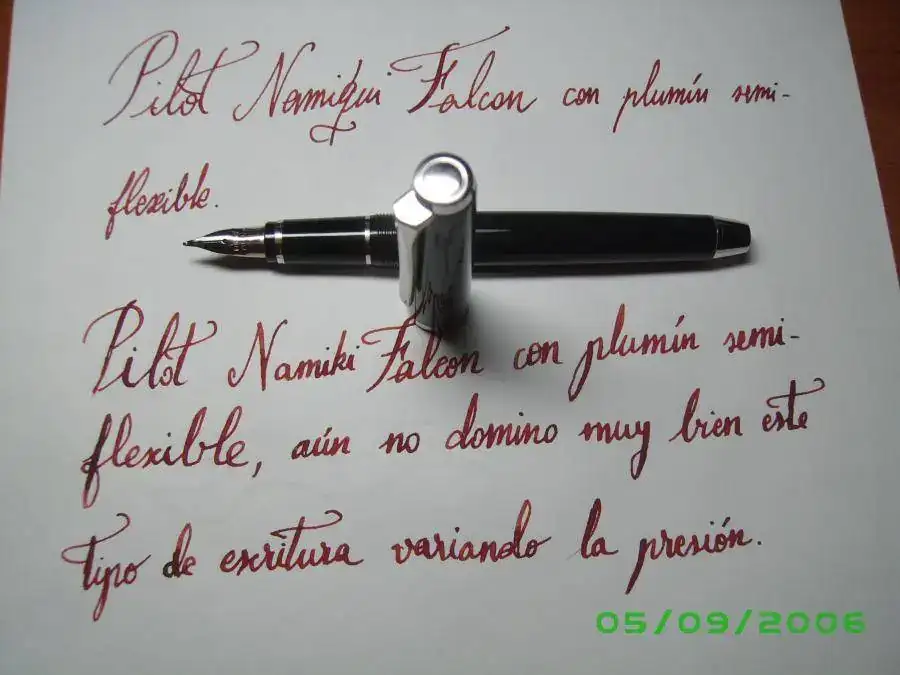 Pilot Namiqui Falcon con plumín semi-
flexible.
Pilot Namiki Falcon con plumín semi-
flexible, aún no domino muy bien este
tipo de escritura variando la presión.
05/09/2006